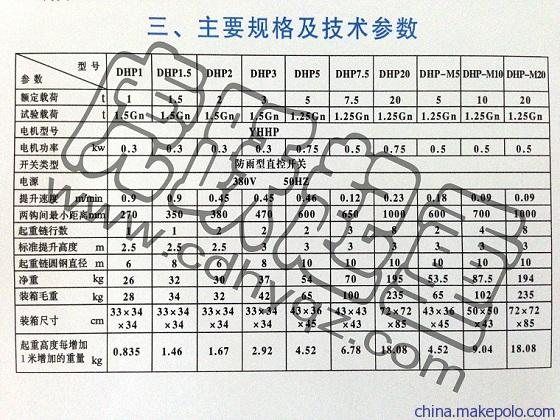 三、主要规格及技术参数
型号
参数 DHP1 DHP1.5 DHP2 DHP3 DHP5 DHP7.5 DHP20 DHP-M5 DHP-M10 DHP-M20
额定载荷 t 1 1.5 2 3 5 7.5 20 5 10 20
试验载荷 t 1.5Gn 1.5Gn 1.5Gn 1.5Gn 1.25Gn 1.25Gn 1.25Gn 1.25Gn 1.25Gn 1.25Gn
电机型号 YHHP
电机功率 kw 0.3 0.3 0.3 0.3 0.75 0.5 0.75 0.5 0.5 0.75
开关类型 防雨型直控开关
电源 380V 50HZ
提升速度 m/min 0.9 0.9 0.45 0.45 0.46 0.12 0.23 0.18 0.09 0.09
两钩间最小距离mm 270 350 380 470 600 650 1000 600 700 1000
起重链行数 1 1 2 2 2 3 8 2 4 8
标准提升高度 m 2.5 2.5 2.5 3 3 3 3 3 3 3
起重链圆钢直径 m 6 8 8 8 10 10 10 10 10 10
净重 kg 26 32 30 37 54 70 195 53.5 87.5 194
装箱毛重 kg 28 34 32 42 65 100 235 65 102 235
装箱尺寸 cm 33×34 33×34 33×34 33×34 43×36 43×43 72×72 43×36 50×50 72×72
×34 ×34 ×34 ×34 ×45 ×43 ×85 ×45 ×43 ×85
起重高度每增加
1米增加的重量 kg 0.835 1.46 1.67 2.92 4.52 6.78 18.08 4.52 9.04 18.08
www.cdhyqz.com
china.makepolo.com